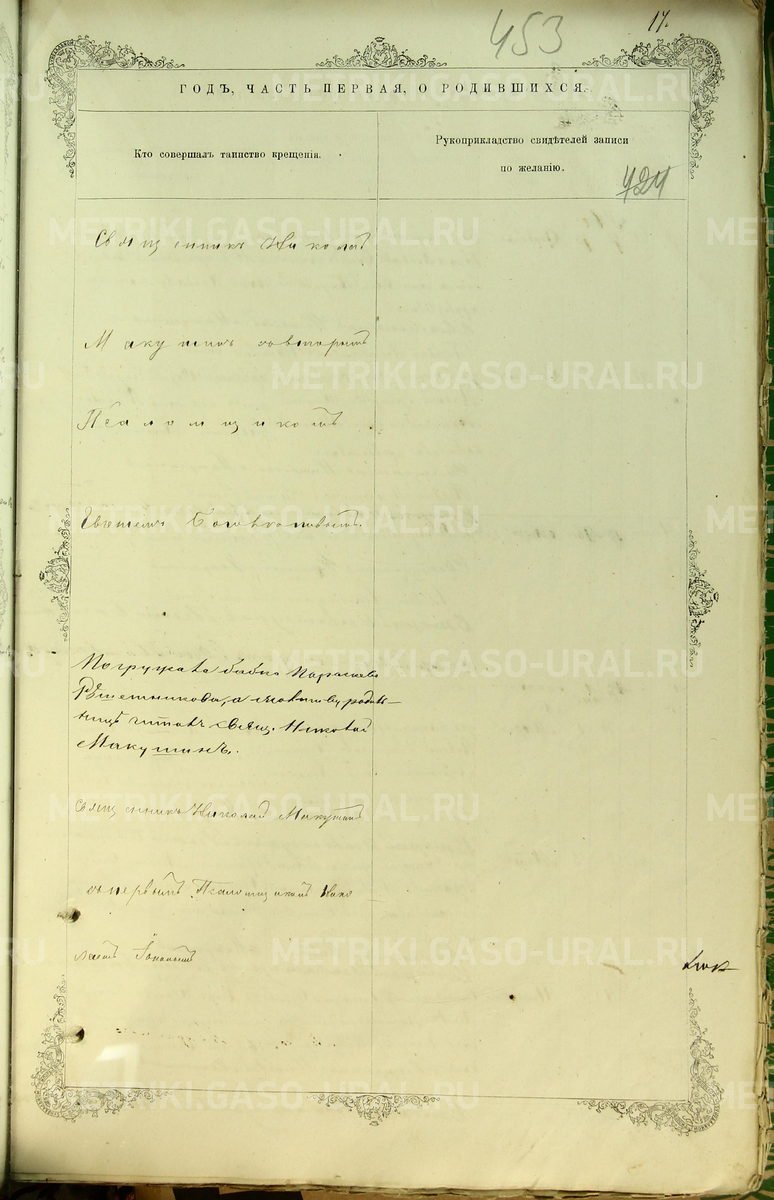 453
17.
ГОДЪ, ЧАСТЬ ПЕРВАЯ, О РОДИВШИХСЯ.
Кто совершалъ таинство крещенія.
Рукоприкладство свидѣтелей записи
по желанію.
424
Священникъ Николай
Макушинъ со вторымъ
Псаломщикомъ
Погружала бабка Параскева
Рѣшетникова, а молитву родиль-
ницѣ читалъ свящ. Николай
Макушинъ.
Священникъ Николай Макушинъ
съ первымъ Псаломщикомъ Нико
лаемъ
METRIKI.GASO-URAL.RU